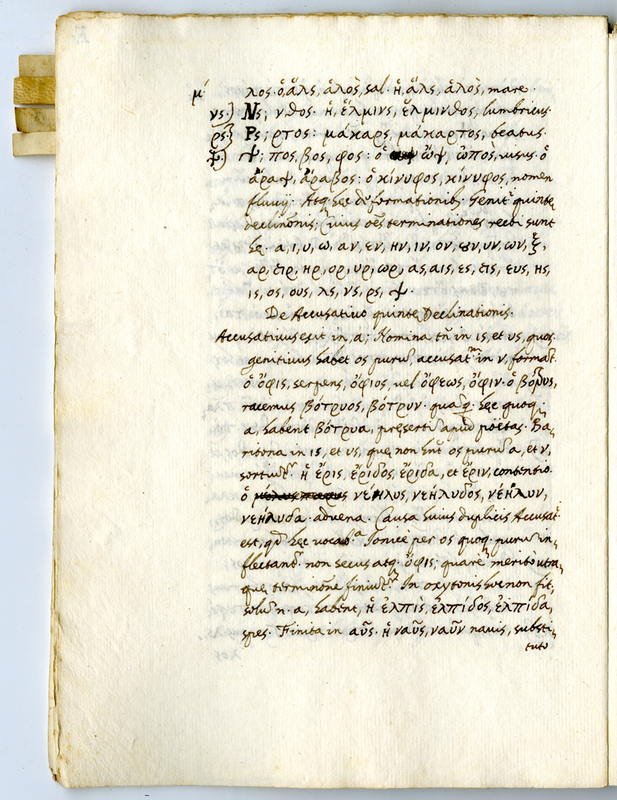 μ´ λος· ὁ, ἅλς, ἁλὸς, sal. ἡ, ἅλς, ἁλὸς, mare.
νς} Νς; νθος· ἡ, ἕλμινς, ἕλμινθος, lumbricus.
ρς} Ρς; ρτος: μάκαρς, μάκαρτος, beatus.
ψ) Ψ; πος, βος, φος: ὁ ὤψ, ὠπὸς, visus. ὁ
ἄραψ, ἄραβος: ὁ κίνυφος, κίνυφος, nomen
fluvij. Atq. hęc de formationib. Genit. quintę
declinōnis; Cuius oēs terminationes recti sunt
hę. α, ι, υ, ω, αν, εν, ην, ιν, ον, ουν, υν, ων, ξ,
αρ, ειρ, ηρ, ορ, υρ, ωρ, ας, αις, ες, εις, ευς, ης,
ις, ος, ους, λς, νς, ρς, ψ.
De Accusativo quintę Declinationis.
Accusativus exit in, α; Nomina tn̄ in ις, et υς, quos
genitivus habet ος purū, accusat. in ν, format.
ὁ ὄφις, serpens, ὄφιος, vel ὄφεως, ὄφιν· ὁ βότρυς,
racemus, βότρυος, βότρυν· quāq. hęc quoq.
α, habent βότρυα, pręserti apud poëtas. Ba,
ritona in ις, et υς, quę non hn̄t ος purū α, et ν,
sortiūt. ἡ ἔρις, ἔριδος, ἔριδα, et ἔριν, contentio.
ὁ νέηλυς, νεήλυδος, νέηλυν,
νεήλυδα· advena. Causa huius duplicis Accusat.
est, qd hęc vocab.ᵃ Ionicè per ος quoq. purū in,
flectant. non secus atq. ὄφις; quare meritò utra,
que terminōne finiūt. In oxytonis hoc non fit,
solū n. α, habent, ἡ ἐλπὶς, ἐλπίδος, ἐλπίδα,
spes. Finita in αῦς· ἡ ναῦς, ναῦν navis, substi,
tuto